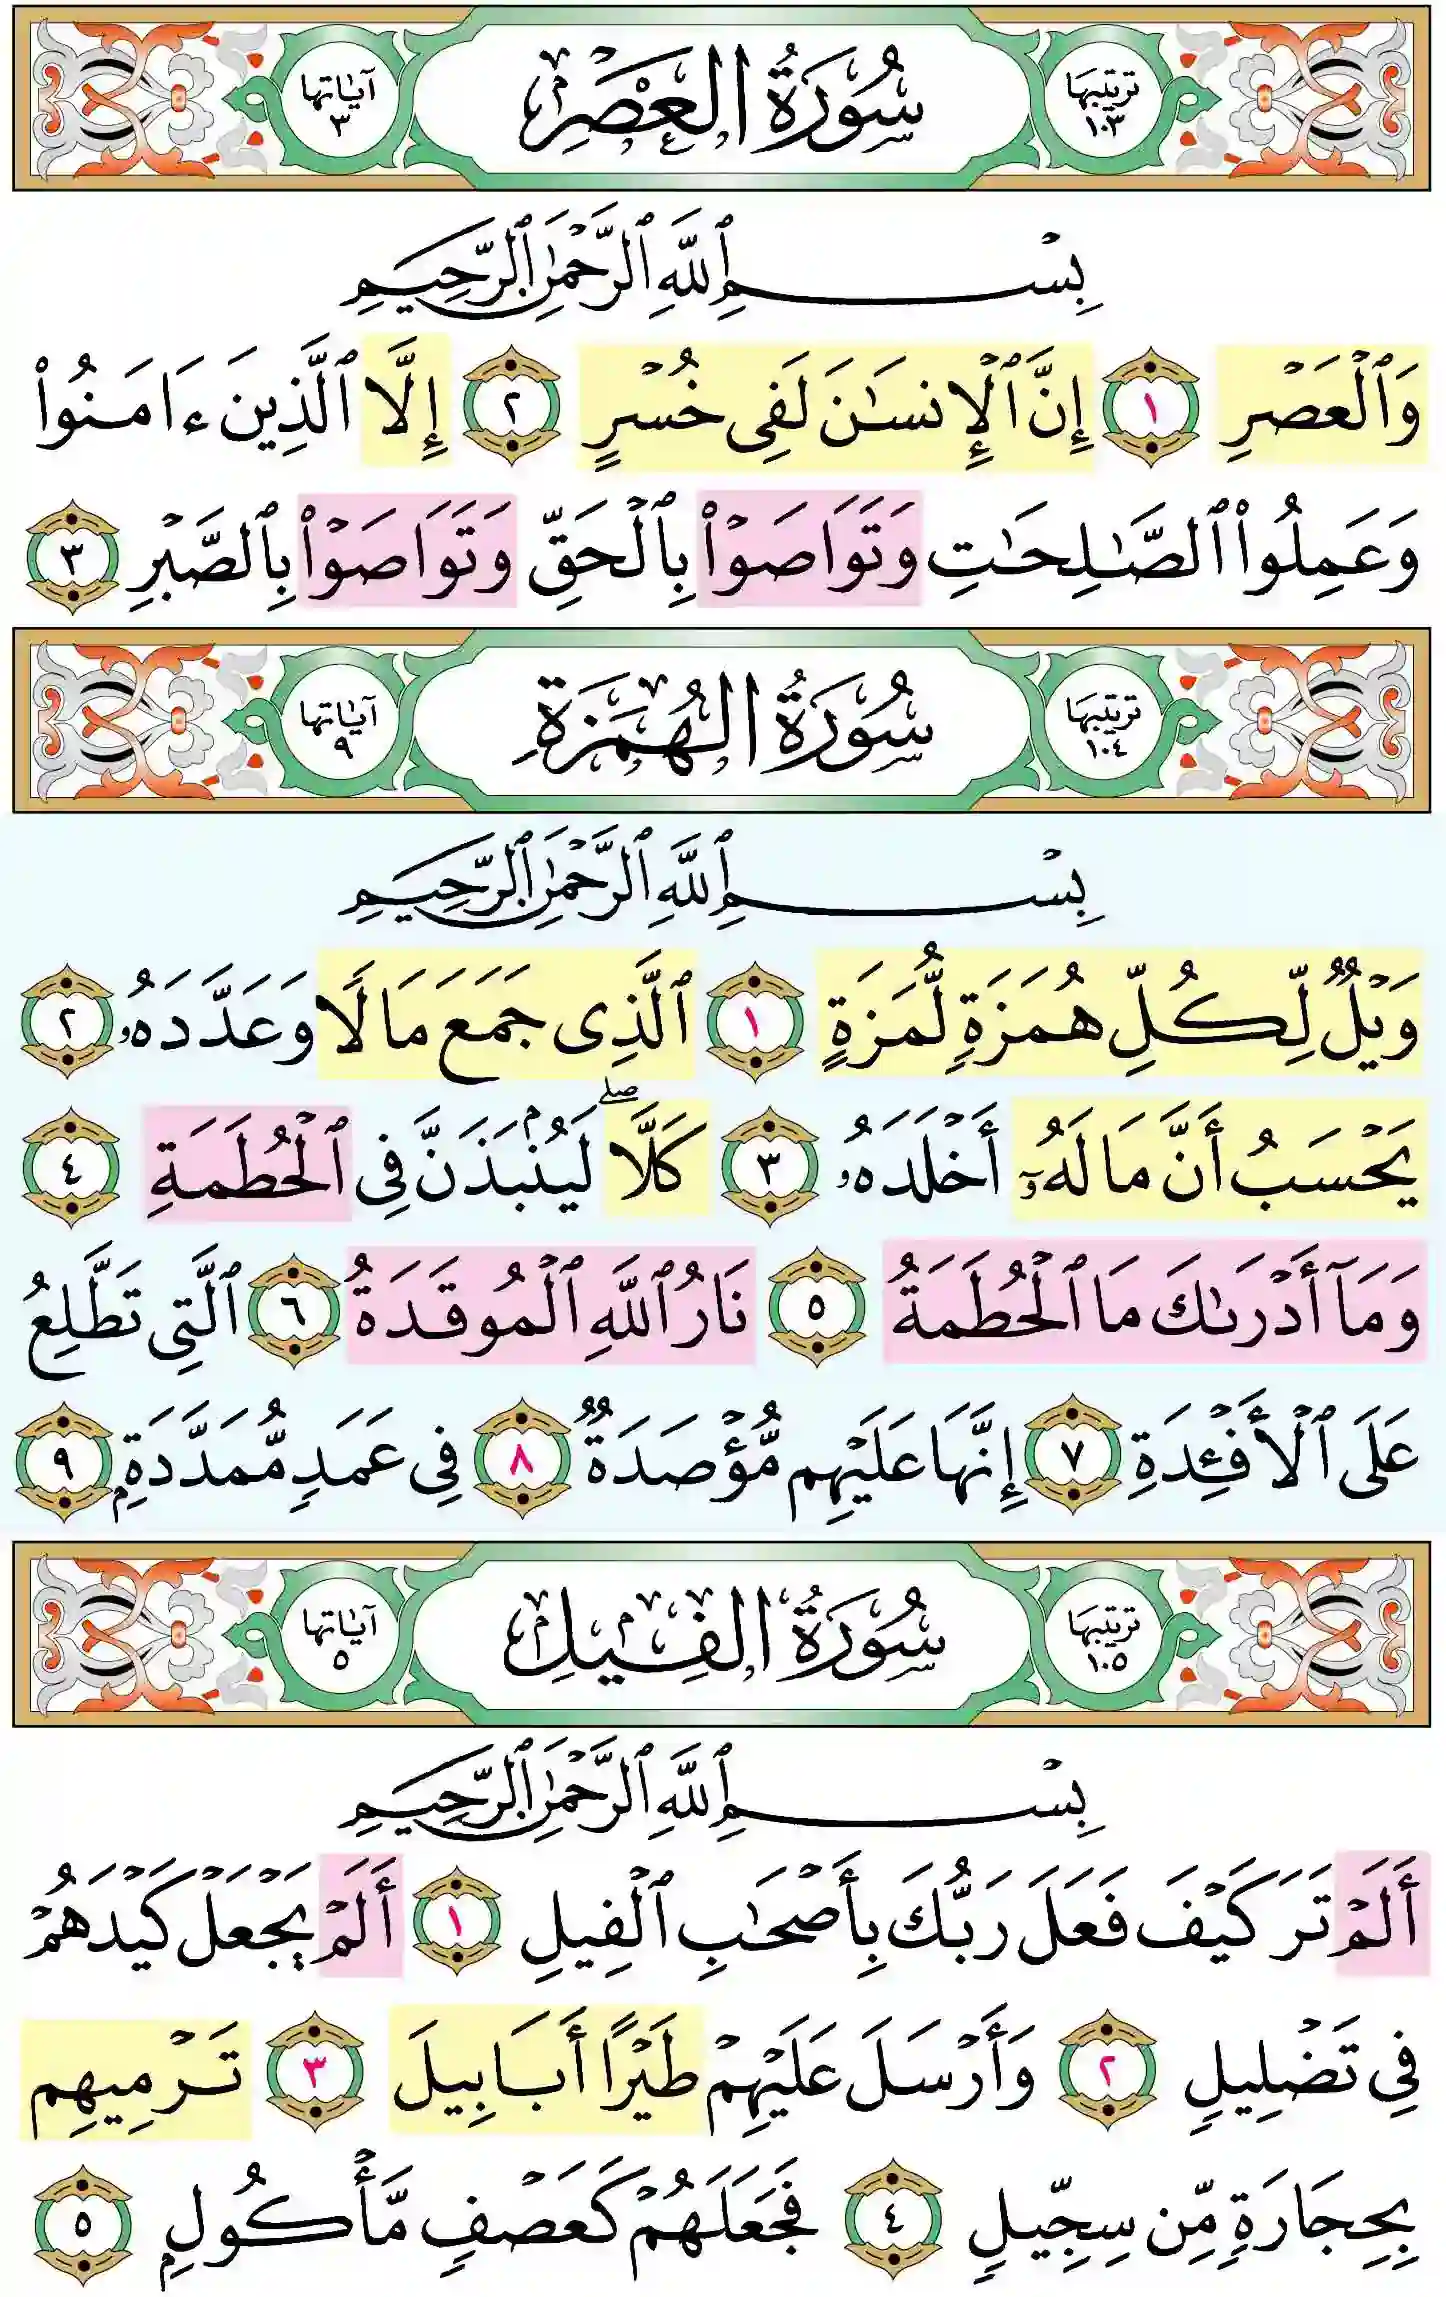 ترتيبها ١٠٣
سُورَةُ العَصْرِ
آياتها ٣
بِسْمِ ٱللَّهِ ٱلرَّحْمَٰنِ ٱلرَّحِيمِ
وَٱلْعَصْرِ ١ إِنَّ ٱلْإِنسَٰنَ لَفِى خُسْرٍ ٢ إِلَّا ٱلَّذِينَ ءَامَنُوا۟
وَعَمِلُوا۟ ٱلصَّٰلِحَٰتِ وَتَوَاصَوْا۟ بِٱلْحَقِّ وَتَوَاصَوْا۟ بِٱلصَّبْرِ ٣
ترتيبها ١٠٤
سُورَةُ الهُمَزَةِ
آياتها ٩
بِسْمِ ٱللَّهِ ٱلرَّحْمَٰنِ ٱلرَّحِيمِ
وَيْلٌ لِّكُلِّ هُمَزَةٍ لُّمَزَةٍ ١ ٱلَّذِى جَمَعَ مَالًا وَعَدَّدَهُۥ ٢
يَحْسَبُ أَنَّ مَالَهُۥٓ أَخْلَدَهُۥ ٣ كَلَّا ۖ لَيُنۢبَذَنَّ فِى ٱلْحُطَمَةِ ٤
وَمَآ أَدْرَىٰكَ مَا ٱلْحُطَمَةُ ٥ نَارُ ٱللَّهِ ٱلْمُوقَدَةُ ٦ ٱلَّتِى تَطَّلِعُ
عَلَى ٱلْأَفْـِٔدَةِ ٧ إِنَّهَا عَلَيْهِم مُّؤْصَدَةٌ ٨ فِى عَمَدٍ مُّمَدَّدَةٍۭ ٩
ترتيبها ١٠٥
سُورَةُ الفِيلِ
آياتها ٥
بِسْمِ ٱللَّهِ ٱلرَّحْمَٰنِ ٱلرَّحِيمِ
أَلَمْ تَرَ كَيْفَ فَعَلَ رَبُّكَ بِأَصْحَٰبِ ٱلْفِيلِ ١ أَلَمْ يَجْعَلْ كَيْدَهُمْ
فِى تَضْلِيلٍ ٢ وَأَرْسَلَ عَلَيْهِمْ طَيْرًا أَبَابِيلَ ٣ تَرْمِيهِم
بِحِجَارَةٍ مِّن سِجِّيلٍ ٤ فَجَعَلَهُمْ كَعَصْفٍ مَّأْكُولٍۭ ٥